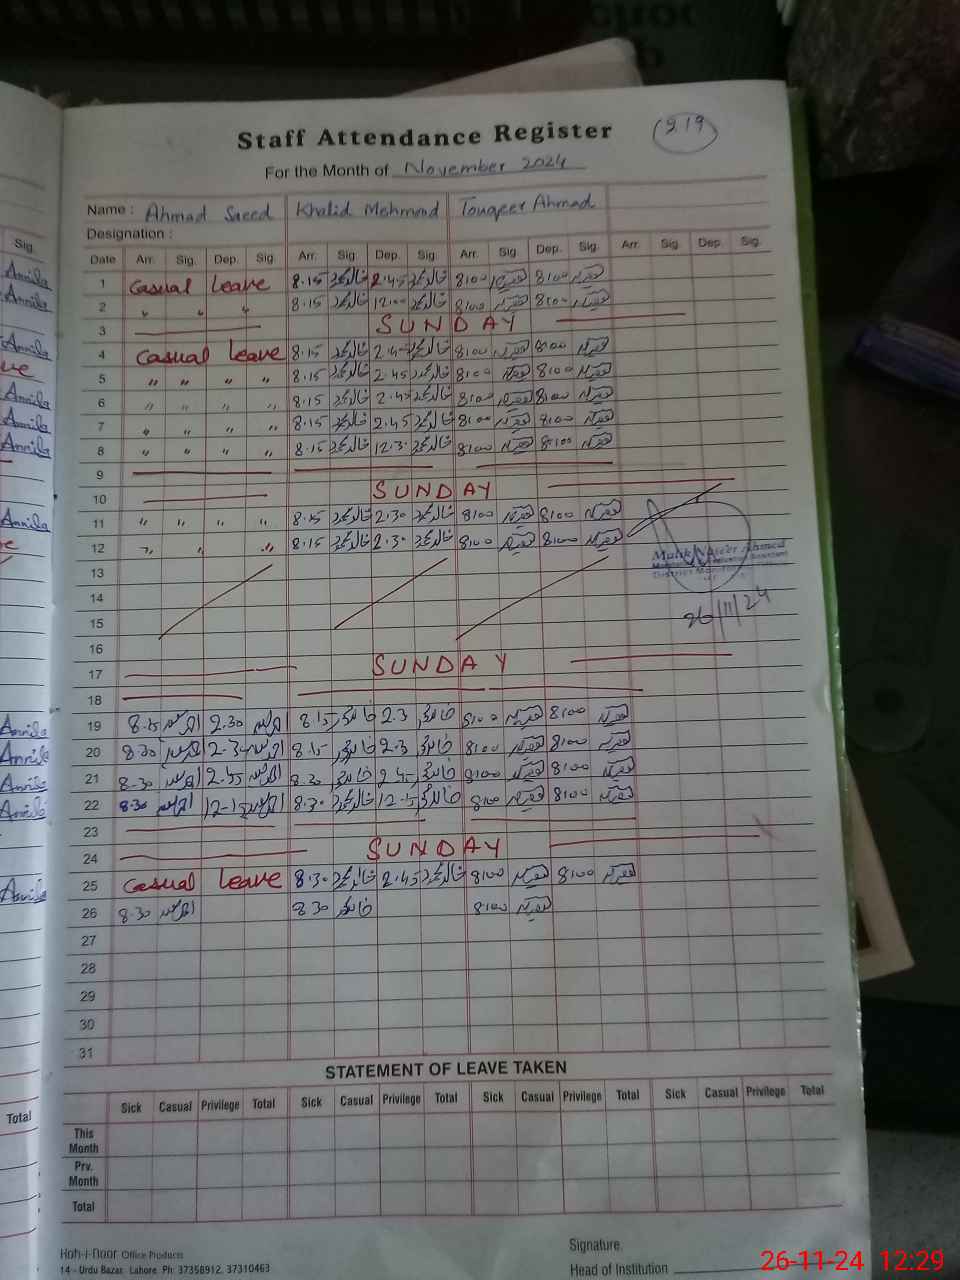 Staff Attendance Register
219
For the Month of November 2024
Name : Ahmad Saeed Khalid Mehmood Touqeer Ahmad
Designation :
Sig.
Date Arr. Sig. Dep. Sig. Arr. Sig. Dep. Sig. Arr. Sig. Dep. Sig. Arr. Sig. Dep. Sig.
Annila 1 Casual leave 8.15 خالد محمود 2.45 خالد محمود 8:00 8:00
Annila 2 " " " 8.15 خالد محمود 12:00 خالد محمود 8:00 8:00
3 SUNDAY
Annila 4 Casual leave 8.15 خالد محمود 2.45 خالد محمود 8:00 8:00
5 " " " " 8.15 خالد محمود 2.45 خالد محمود 8:00 8:00
Annila 6 " " " " 8.15 خالد محمود 2.45 خالد محمود 8:00 8:00
Annila 7 " " " " 8.15 خالد محمود 2.45 خالد محمود 8:00 8:00
Annila 8 " " " " 8.15 خالد محمود 12.30 خالد محمود 8:00 8:00
9
10 SUNDAY
Annila 11 " " " " 8.15 خالد محمود 2.30 خالد محمود 8:00 8:00
12 " " " 8.15 خالد محمود 2.30 خالد محمود 8:00 8:00
Malik Naseer Ahmed
13
14
26/11/24
15
16
17 SUNDAY
18
Annila 19 8.15 2.30 8.15 خالد محمود 2.3 خالد محمود 8:00 8:00
Annila 20 8.30 2.30 8.15 خالد محمود 2.3 خالد محمود 8:00 8:00
Annila 21 8.30 2.45 8.30 خالد محمود 2.45 خالد محمود 8:00 8:00
Annila 22 8.30 12-15 8.30 خالد محمود 12-15 خالد محمود 8:00 8:00
23
24 SUNDAY
Annila 25 Casual leave 8.30 خالد محمود 2.45 خالد محمود 8:00 8:00
26 8.30 8.30 خالد محمود 8:00
27
28
29
30
31
STATEMENT OF LEAVE TAKEN
Total Sick Casual Privilege Total Sick Casual Privilege Total Sick Casual Privilege Total Sick Casual Privilege Total
This Month
Prv. Month
Total
Koh-i-Noor Office Products
14 - Urdu Bazar, Lahore. Ph: 37358912, 37310463
Signature.
Head of Institution
26-11-24 12:29